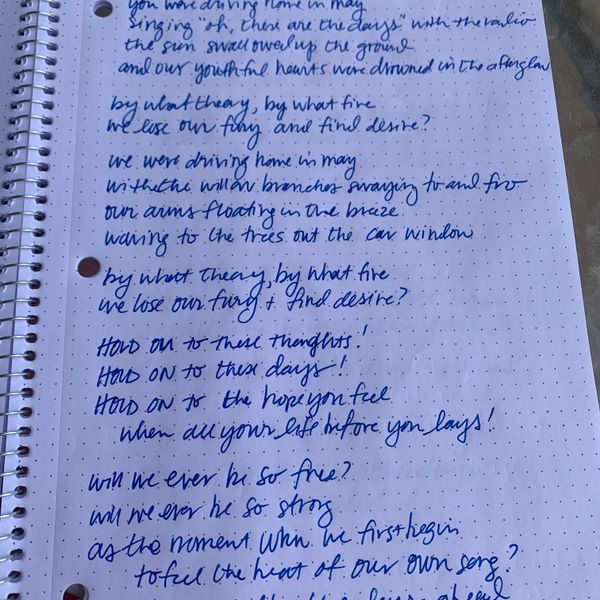 you were driving home in may
singing "oh, these are the days" with the radio
the sun swallowed up the ground
and our youthful hearts were drowned in the afterglow
by what theory, by what fire
we lose our fury and find desire?
we were driving home in may
with the willow branches swaying to and fro
our arms floating in the breeze
waving to the trees out the car window
by what theory, by what fire
we lose our fury + find desire?
HOLD ON to these thoughts!
HOLD ON to these days!
HOLD ON to the hope you feel
when all your life before you lays!
will we ever be so free?
will we ever be so strong
as the moment when we first begin
to feel the heat of our own song?
ahead